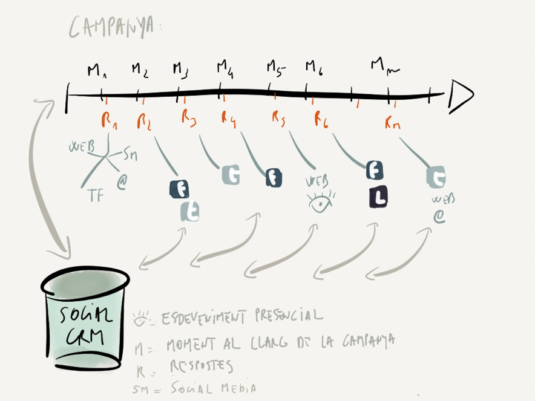 CAMPANYA:
M1 M2 M3 M4 M5 M6 Mm
R1 R2 R3 R4 R5 R6 Rm
WEB SM @ TF
F t
t
F
WEB
F L
t WEB @
SOCIAL CRM
ESDEVENIMENT PRESENCIAL
M = MOMENT AL LLARG DE LA CAMPANYA
R = RESPOSTES
SM = SOCIAL MEDIA